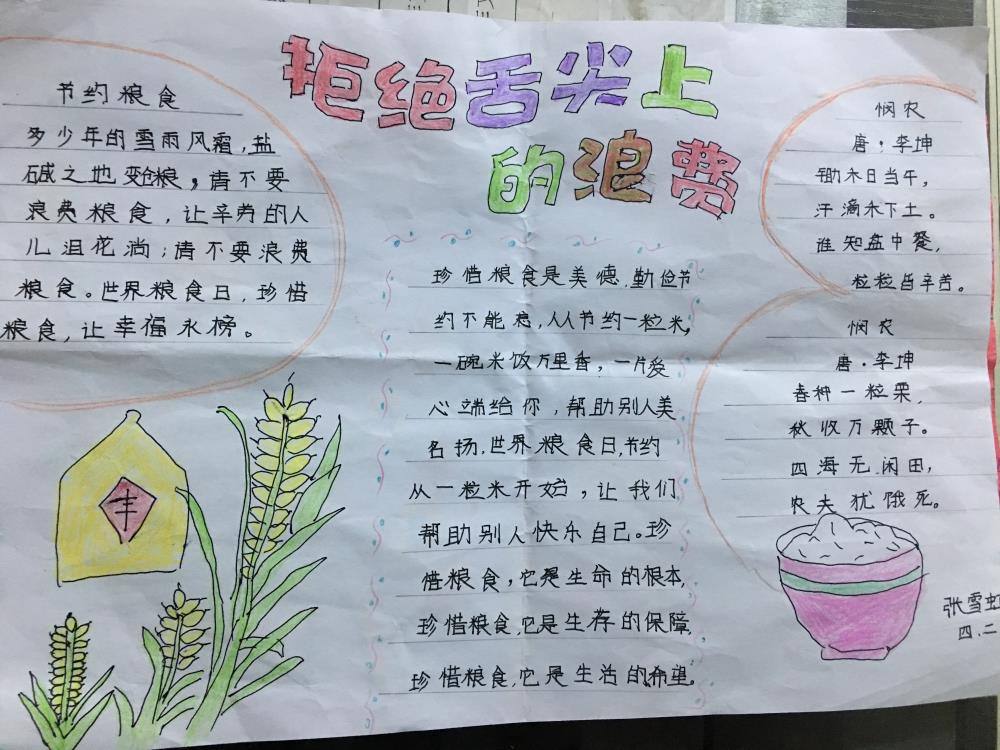 拒绝舌尖上
的浪费
节约粮食
多少年的雪雨风霜,盐
碱之地变粮,请不要
浪费粮食,让辛劳的人
儿泪花淌;请不要浪费
粮食。世界粮食日,珍惜
粮食,让幸福永榜。
丰
珍惜粮食是美德,勤俭节
约不能忘,人人节约一粒米,
一碗米饭万里香,一片爱
心端给你,帮助别人美
名扬.世界粮食日,节约
从一粒米开始,让我们
帮助别人快乐自己。珍
惜粮食,它是生命的根本,
珍惜粮食,它是生存的保障,
珍惜粮食,它是生活的希望。
悯农
唐·李坤
锄禾日当午,
汗滴禾下土。
谁知盘中餐,
粒粒皆辛苦。
悯农
唐·李坤
春种一粒栗,
秋收万颗子。
四海无闲田,
农夫犹饿死。
张雪虹
四.二